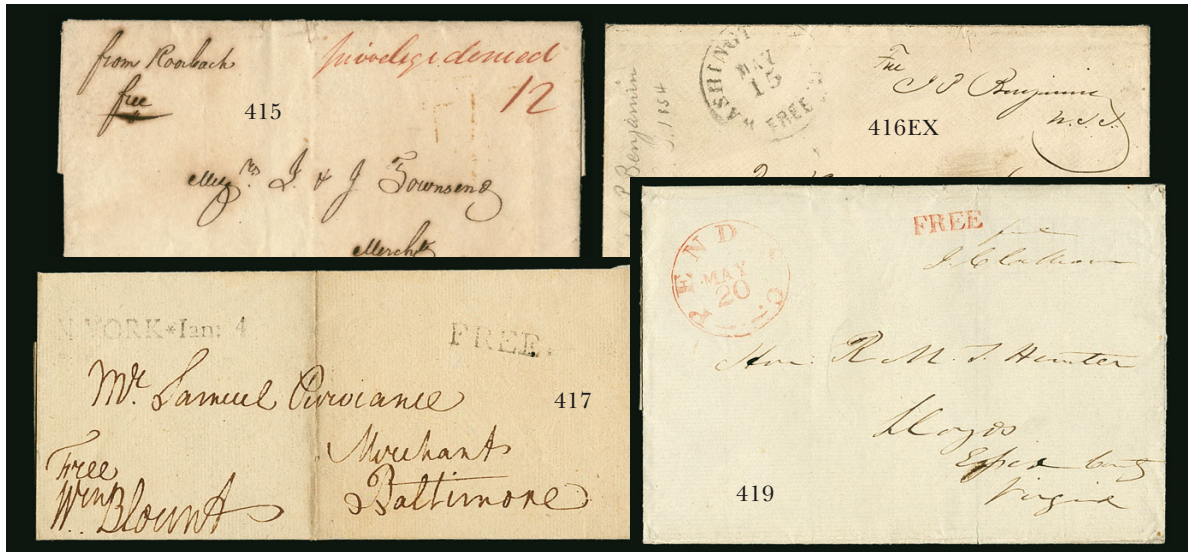 from Roorback
free
privelege denied
12
415
Mess.rs I. & J Townsend
Mercht.s
WASHINGT
MAY
15
FREE
Free
J P Benjamin
U.S.S.
416EX
P Benjamin
1854
N YORK*Ian: 4
FREE.
Mr. Samuel Purviance
417
Merchant
Baltimore
Free
Wm. Blount
PEND
MAY
20
C
FREE
free
J. C. Calhoun
Hon: R. M. T. Hunter
Lloyds
Essex County
Virginia
419